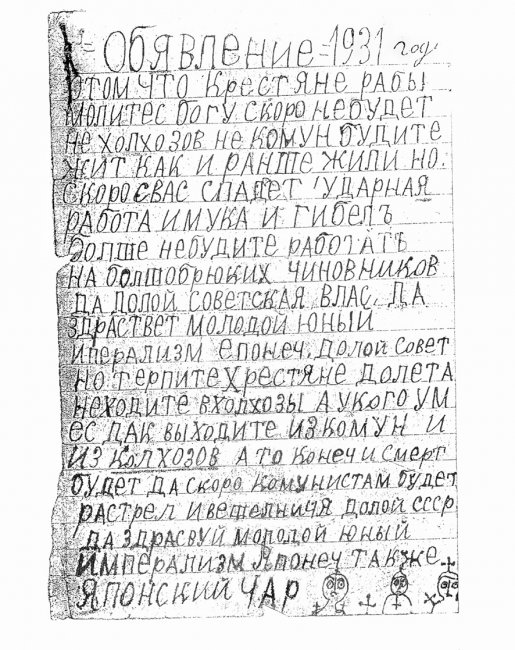 Обявление = 1931 год.
отом что Крестяне рабы
молитес богу скоро небудет
не холхозов не комун будите
жит как и ранше жили но.
скоро свас спадет ударная
работа и мука и гибелъ
болше небудите работатъ
на болшобрюких чиновников
да долой советская влас, да
здраствет молодой юный
иперализм епонеч. долой совет
но терпите хрестяне долета
неходите вхолхозы а укого ум
ес дак выходите из комун и
из колхозов а то конеч и смерт
будет да скоро комунистам будет
растрел и вешелничя долой ссср
да здрасвуй молодой юный
империлизм японеч также
японский чар